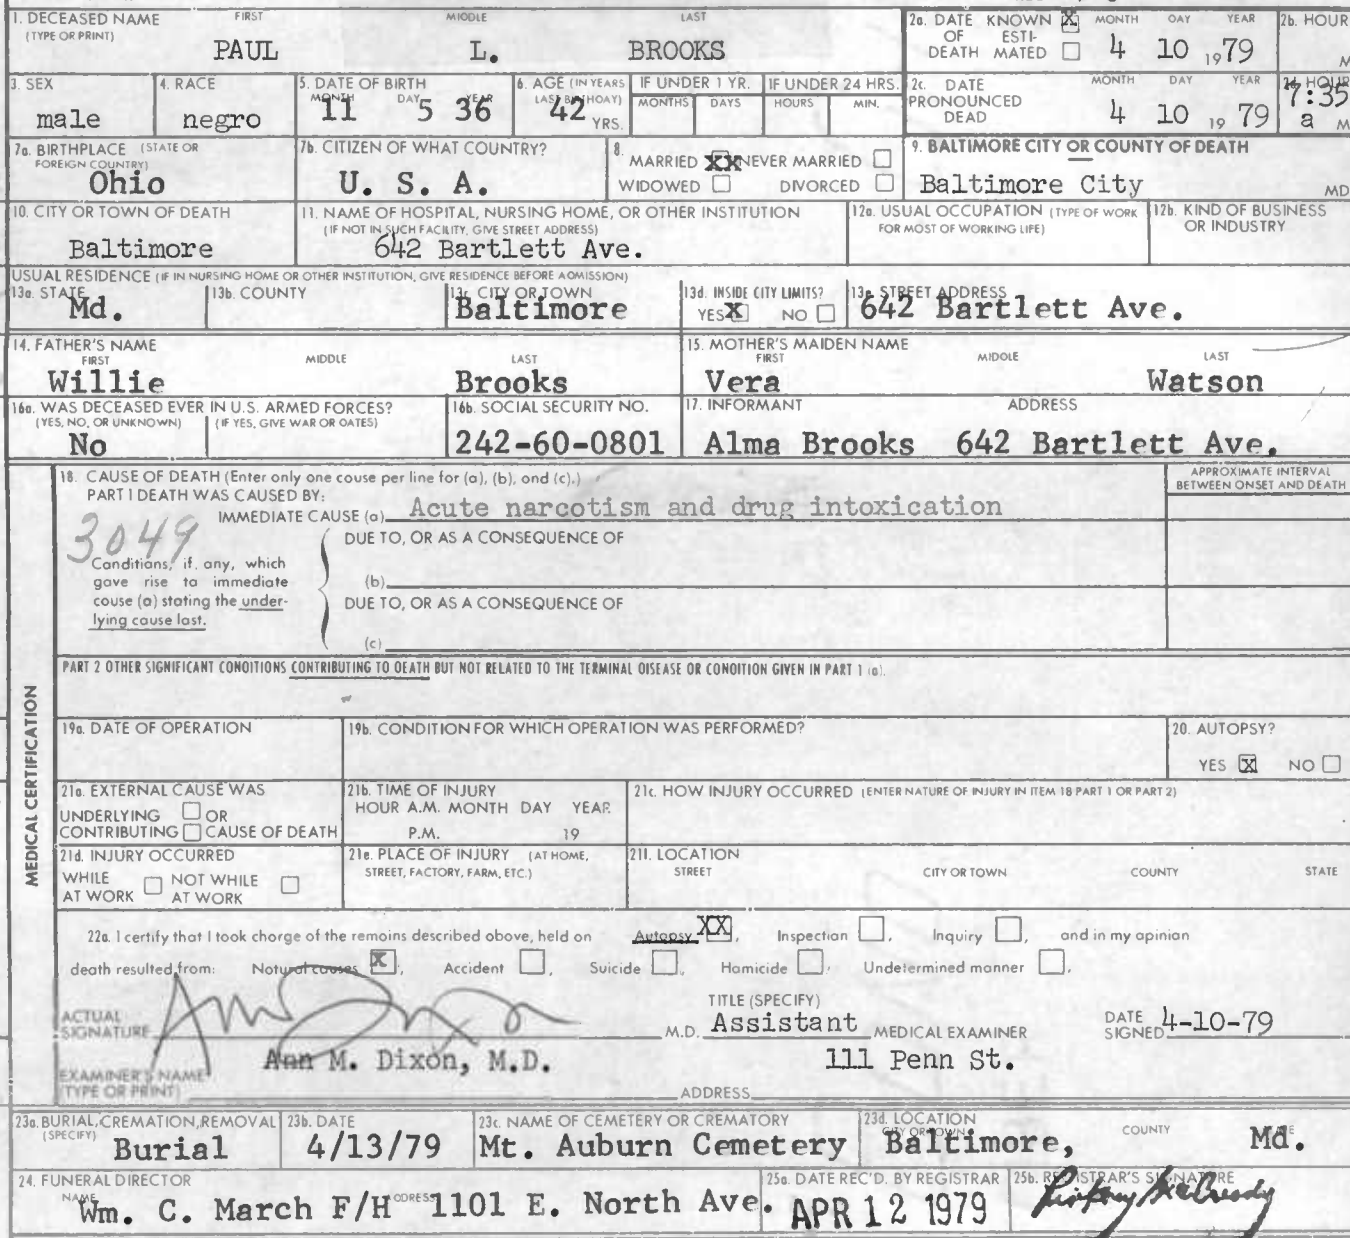 1. DECEASED NAME FIRST MIDDLE LAST
(TYPE OR PRINT)
PAUL L. BROOKS
2a. DATE OF DEATH KNOWN X ESTIMATED MONTH DAY YEAR
4 10 1979
2b. HOUR
M
3. SEX
male
4. RACE
negro
5. DATE OF BIRTH
MONTH DAY YEAR
11 5 36
6. AGE (IN YEARS LAST BIRTHDAY)
42 YRS.
IF UNDER 1 YR.
MONTHS DAYS
IF UNDER 24 HRS.
HOURS MIN.
2c. DATE PRONOUNCED DEAD MONTH DAY YEAR
4 10 1979
HOUR
7:35
a M
7a. BIRTHPLACE (STATE OR FOREIGN COUNTRY)
Ohio
7b. CITIZEN OF WHAT COUNTRY?
U. S. A.
8.
MARRIED XX NEVER MARRIED
WIDOWED DIVORCED
9. BALTIMORE CITY OR COUNTY OF DEATH
Baltimore City MD
10. CITY OR TOWN OF DEATH
Baltimore
11. NAME OF HOSPITAL, NURSING HOME, OR OTHER INSTITUTION
(IF NOT IN SUCH FACILITY, GIVE STREET ADDRESS)
642 Bartlett Ave.
12a. USUAL OCCUPATION (TYPE OF WORK FOR MOST OF WORKING LIFE)
12b. KIND OF BUSINESS OR INDUSTRY
USUAL RESIDENCE (IF IN NURSING HOME OR OTHER INSTITUTION, GIVE RESIDENCE BEFORE ADMISSION)
13a. STATE
Md.
13b. COUNTY
13c. CITY OR TOWN
Baltimore
13d. INSIDE CITY LIMITS?
YES X NO
13e. STREET ADDRESS
642 Bartlett Ave.
14. FATHER'S NAME
FIRST MIDDLE LAST
Willie Brooks
15. MOTHER'S MAIDEN NAME
FIRST MIDDLE LAST
Vera Watson
16a. WAS DECEASED EVER IN U.S. ARMED FORCES?
(YES, NO, OR UNKNOWN) (IF YES, GIVE WAR OR DATES)
No
16b. SOCIAL SECURITY NO.
242-60-0801
17. INFORMANT ADDRESS
Alma Brooks 642 Bartlett Ave.
MEDICAL CERTIFICATION
18. CAUSE OF DEATH (Enter only one cause per line for (a), (b), and (c).)
APPROXIMATE INTERVAL BETWEEN ONSET AND DEATH
PART I DEATH WAS CAUSED BY:
IMMEDIATE CAUSE (a) Acute narcotism and drug intoxication
3049
DUE TO, OR AS A CONSEQUENCE OF
Conditions, if any, which gave rise to immediate cause (a) stating the underlying cause last.
(b)
DUE TO, OR AS A CONSEQUENCE OF
(c)
PART 2 OTHER SIGNIFICANT CONDITIONS CONTRIBUTING TO DEATH BUT NOT RELATED TO THE TERMINAL DISEASE OR CONDITION GIVEN IN PART 1 (a).
19a. DATE OF OPERATION
19b. CONDITION FOR WHICH OPERATION WAS PERFORMED?
20. AUTOPSY?
YES X NO
21a. EXTERNAL CAUSE WAS
UNDERLYING OR
CONTRIBUTING CAUSE OF DEATH
21b. TIME OF INJURY
HOUR A.M. MONTH DAY YEAR
P.M. 19
21c. HOW INJURY OCCURRED (ENTER NATURE OF INJURY IN ITEM 18 PART 1 OR PART 2)
21d. INJURY OCCURRED
WHILE AT WORK NOT WHILE AT WORK
21e. PLACE OF INJURY (AT HOME, STREET, FACTORY, FARM, ETC.)
21f. LOCATION
STREET CITY OR TOWN COUNTY STATE
22a. I certify that I took charge of the remains described above, held on Autopsy XX, Inspection, Inquiry, and in my opinion
death resulted from: Natural causes X, Accident, Suicide, Homicide, Undetermined manner.
ACTUAL SIGNATURE
M.D.
TITLE (SPECIFY)
Assistant MEDICAL EXAMINER
DATE SIGNED 4-10-79
EXAMINER'S NAME (TYPE OR PRINT)
Ann M. Dixon, M.D.
ADDRESS
111 Penn St.
23a. BURIAL, CREMATION, REMOVAL (SPECIFY)
Burial
23b. DATE
4/13/79
23c. NAME OF CEMETERY OR CREMATORY
Mt. Auburn Cemetery
23d. LOCATION
CITY OR TOWN COUNTY
Baltimore, Md.
24. FUNERAL DIRECTOR
NAME ADDRESS
Wm. C. March F/H 1101 E. North Ave.
25a. DATE REC'D. BY REGISTRAR
APR 12 1979
25b. REGISTRAR'S SIGNATURE